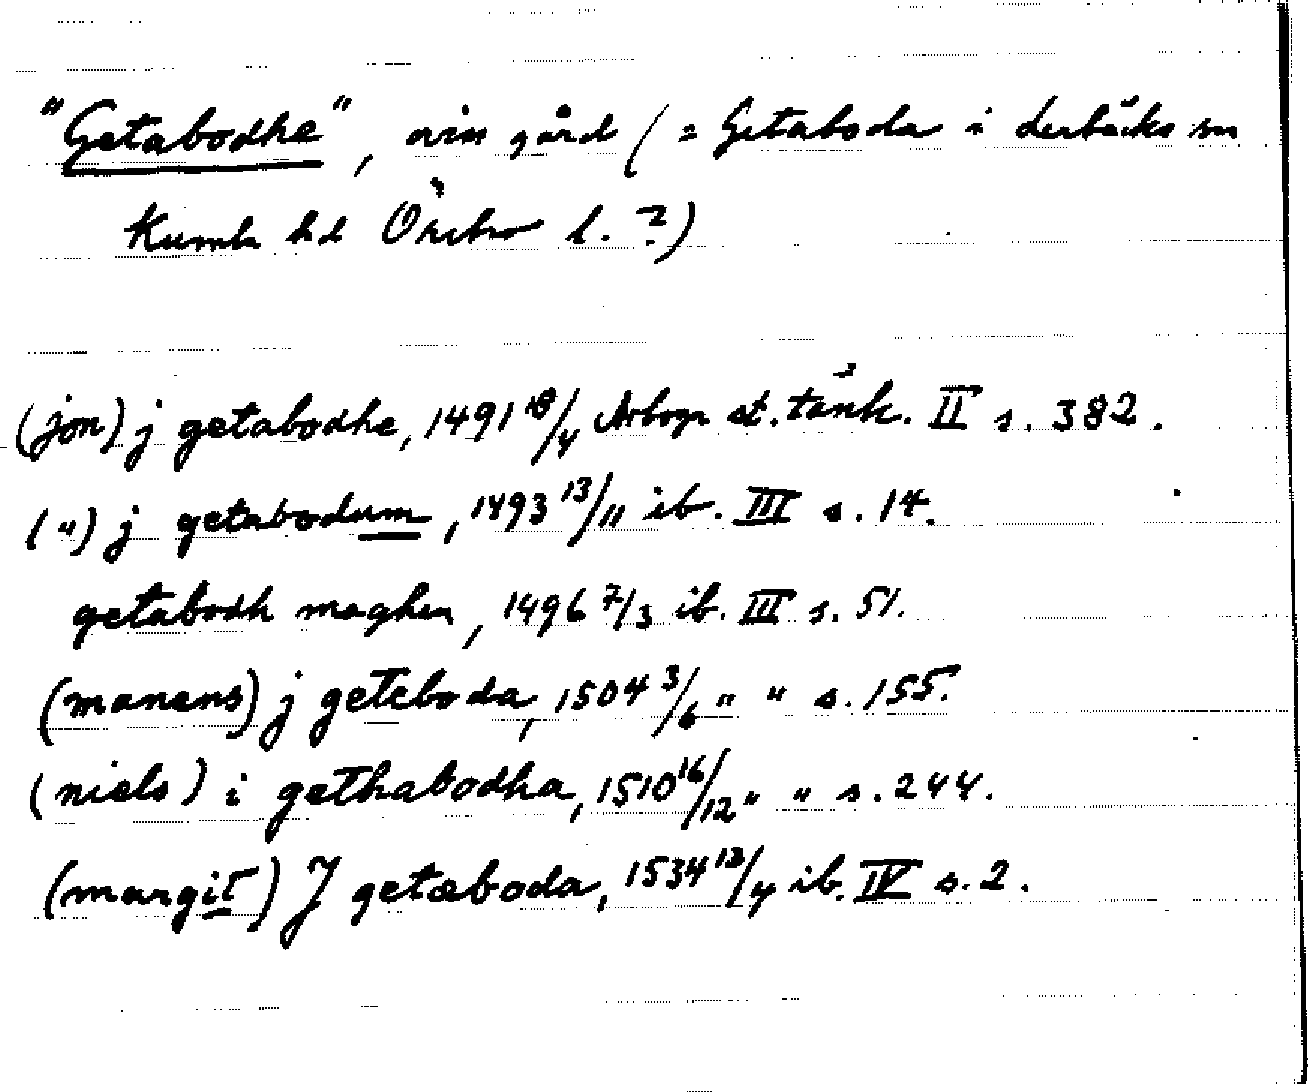 "Getabodhe", övin gård (= Getaboda i Lerbäcks sn
Kumla hd Örebro l. ?)
(jon) j getabodhe, 1491 18/4 Arboga st. tänk. II s. 382.
(") j getabodum, 1493 13/11 ib. III s. 14.
getabodh maghen, 1496 7/3 ib. III s. 51.
(manens) j geteboda, 1504 3/6 " " s. 155.
(niels) i gethabodha, 1510 16/12 " " s. 244.
(margit) J getæboda, 1534 13/4 ib. IV s. 2.